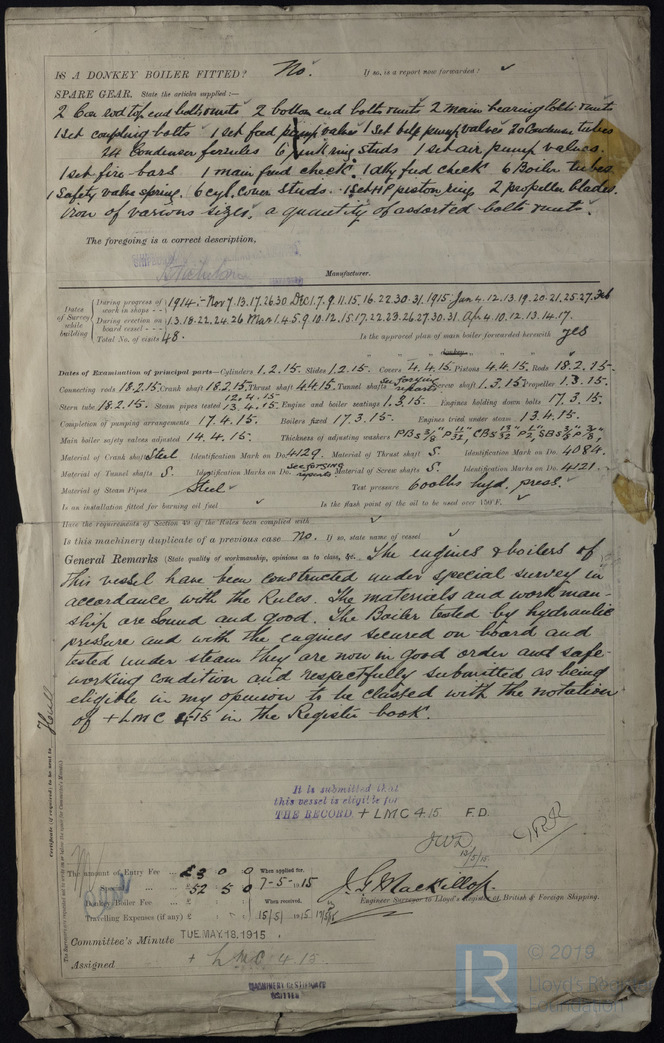 IS A DONKEY BOILER FITTED? No. If so, is a report now forwarded? ✓
SPARE GEAR. State the articles supplied:—
2 Con rod top end bolts & nuts 2 bottom end bolts & nuts 2 main bearing bolts & nuts
1 set coupling bolts 1 set feed pump valves 1 set bilge pump valves 20 Condenser tubes
24 Condenser ferrules 6 junk ring studs 1 set air pump valves.
1 set fire bars 1 main feed check 1 dky feed check 6 Boiler tubes
1 Safety valve spring. 6 cyl. cover studs. 1 set HP piston ring 2 propeller blades.
Iron of various sizes. a quantity of assorted bolts & nuts.
The foregoing is a correct description,
Manufacturer.
Dates of Survey while building
During progress of work in shops - - 1914:- Nov 7.13.17.26.30 Dec 1.7.9.11.15.16.22.30.31. 1915 Jan 4.12.13.19.20.21.25.27. Feb
During erection on board vessel - - - 1.3.18.22.24.26 Mar 1.4.5.9.10.12.15.17.22.23.26.27.30.31. Ap 4.10.12.13.14.17.
Total No. of visits 48. Is the approved plan of main boiler forwarded herewith yes
" " " donkey " " "
Dates of Examination of principal parts—Cylinders 1.2.15. Slides 1.2.15. Covers 4.4.15. Pistons 4.4.15. Rods 18.2.15.
Connecting rods 18.2.15. Crank shaft 18.2.15. Thrust shaft 4.4.15. Tunnel shafts see forging reports Screw shaft 1.3.15. Propeller 1.3.15.
Stern tube 18.2.15. Steam pipes tested 12.4.15 13.4.15. Engine and boiler seatings 1.3.15. Engines holding down bolts 17.3.15.
Completion of pumping arrangements 17.4.15. Boilers fixed 17.3.15. Engines tried under steam 13.4.15.
Main boiler safety valves adjusted 14.4.15. Thickness of adjusting washers
Material of Crank shaft Steel Identification Mark on Do. 4129. Material of Thrust shaft S. Identification Mark on Do. 4084.
Material of Tunnel shafts S. Identification Marks on Do. see forging reports Material of Screw shafts S. Identification Marks on Do. 4121.
Material of Steam Pipes Steel ✓ Test pressure 600 lbs hyd. press.
Is an installation fitted for burning oil fuel ✓ Is the flash point of the oil to be used over 150°F. ✓
Have the requirements of Section 49 of the Rules been complied with ✓
Is this machinery duplicate of a previous case No. If so, state name of vessel ✓
General Remarks (State quality of workmanship, opinions as to class, &c. The engines & boilers of
this vessel have been constructed under special survey in
accordance with the Rules. The materials and workman-
ship are sound and good. The Boiler tested by hydraulic
pressure and with the engines secured on board and
tested under steam they are now in good order and safe
working condition and respectfully submitted as being
eligible in my opinion to be classed with the notation
of + LMC 4.15 in the Register book.
Hull
Certificate (if required) to be sent to
It is submitted that
this vessel is eligible for
THE RECORD. + LMC 4.15. F.D.
JWD
12/5/15
The amount of Entry Fee ... £3 0 0 When applied for.
" " ... £52 5 0 7-5-1915
Donkey Boiler Fee ... £ : : When received.
Travelling Expenses (if any) £ : : 15/5/1915
J. G. Mackillop.
Engineer Surveyor to Lloyd's Register of British & Foreign Shipping.
Committee's Minute TUE. MAY. 18. 1915
Assigned + LMC 4.15.
MACHINERY CERTIFICATE
WRITTEN
LR
© 2019
Lloyd's Register
Foundation